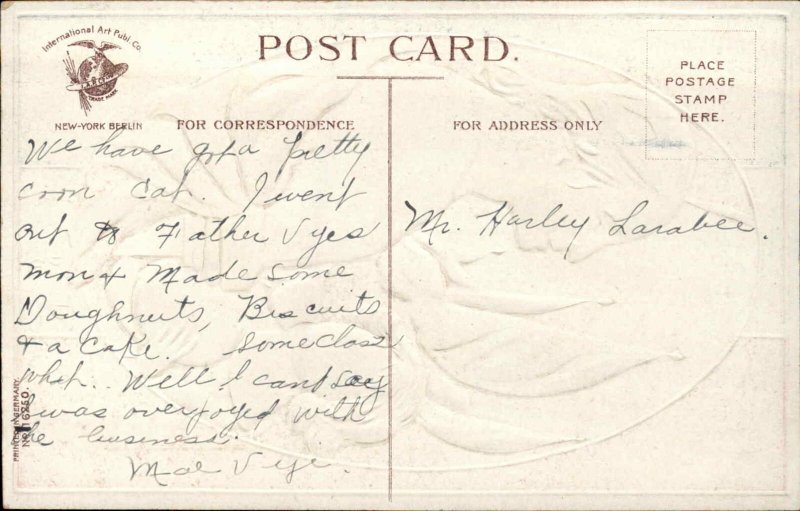 International Art Publ. Co.
TRADE MARK
NEW-YORK BERLIN
POST CARD.
PLACE
POSTAGE
STAMP
HERE.
FOR CORRESPONDENCE
FOR ADDRESS ONLY
We have got a pretty
coon Cat. I went
out to Father Vyes
mon + Made some
Doughnuts, Biscuits
+ a Cake. Some class
what.. Well I cant say
I was overjoyed with
the business.
Mae Vye.
Mr. Harley Larabee.
PRINTED IN GERMANY.
No. 16250.